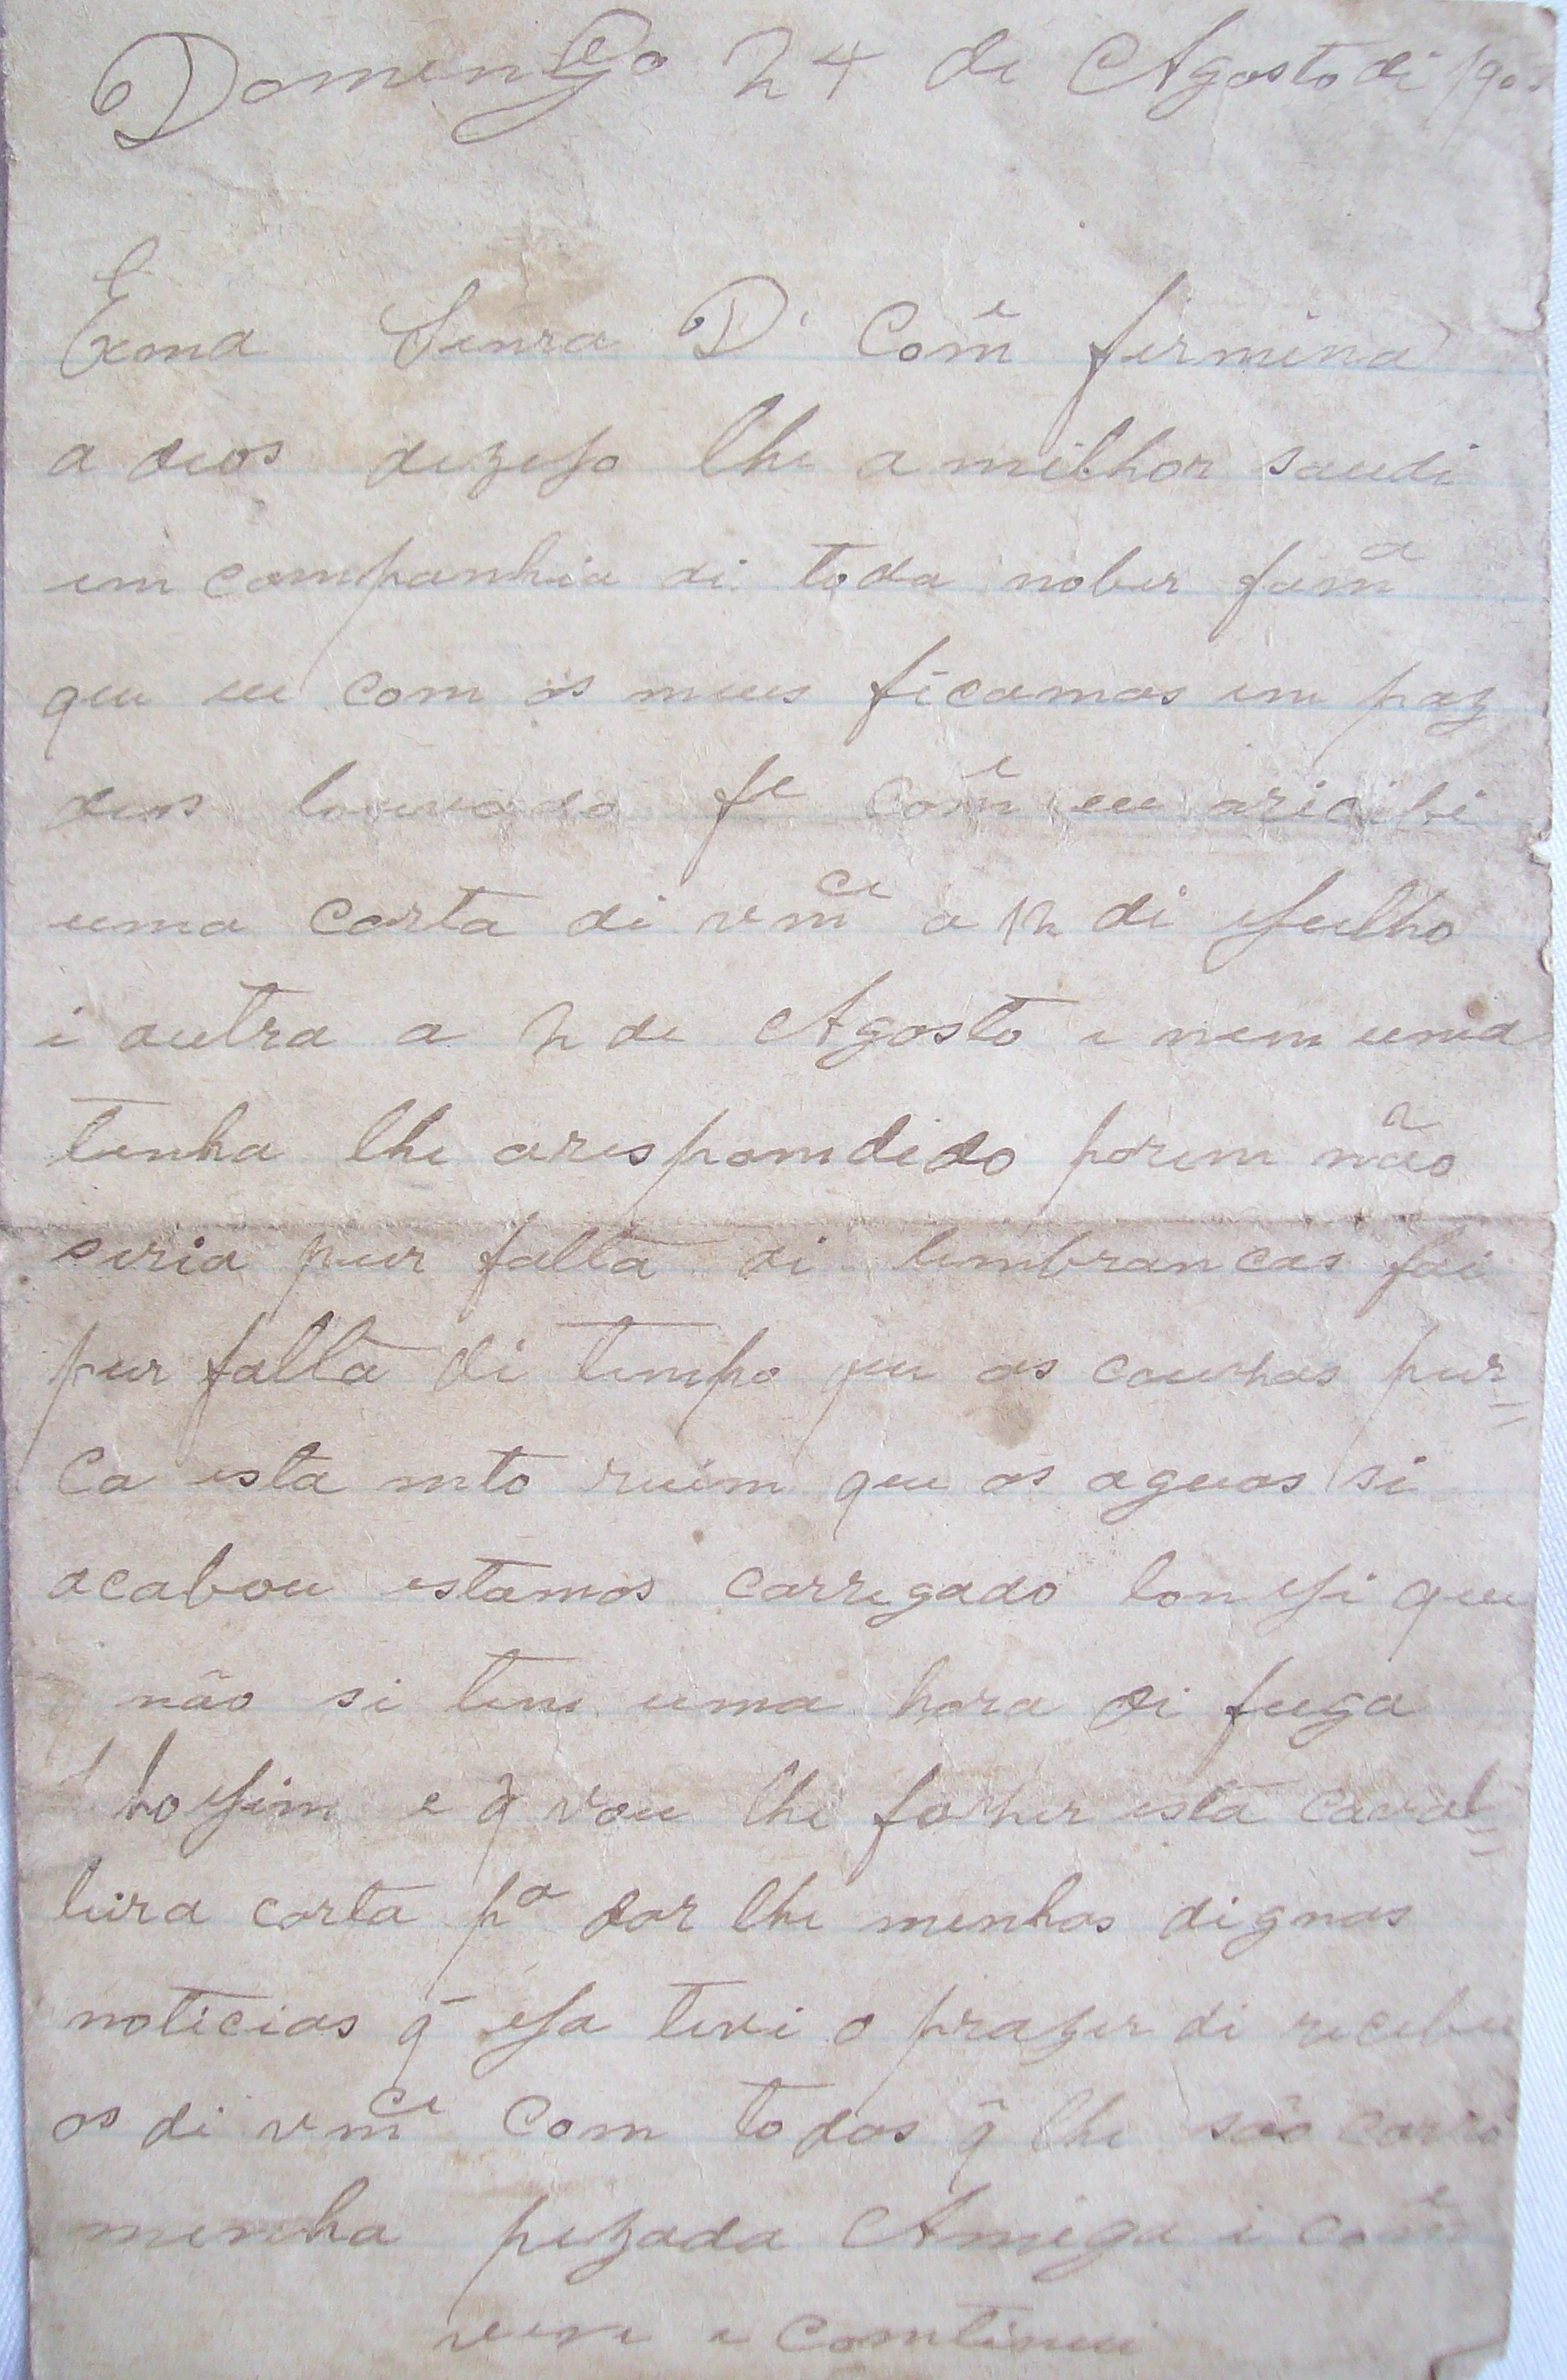 Domingo 24 de Agosto di 190
Exma Senra D. Com.e firmina
a deos dezejo lhe a milhor saudi
em companhia di toda nober fam.a
que eu com os meus ficamos em paz
deos louvado f.e Com.e eu aricibi
uma carta di vm.ce a 12 di Julho
i outra a 2 de Agosto e nem uma
tenha lhe arespomdido porem não
seria pur falta di lembrancas foi
pur falta di tempo que as couzas pur=
Ca esta mto ruim que as aguas si
acabou estamos carregado lonji que
não si tem uma hora di fuga
hojim e q̃ vou lhe fazher esta caval=
leira carta p.a dar lhe minhas dignas
noticias q̃ ja tivi o prazer di receber
as di vm.ce Com todos q̃ lhe são caro
minha pezada Amiga i Com.e
vere e comtinui